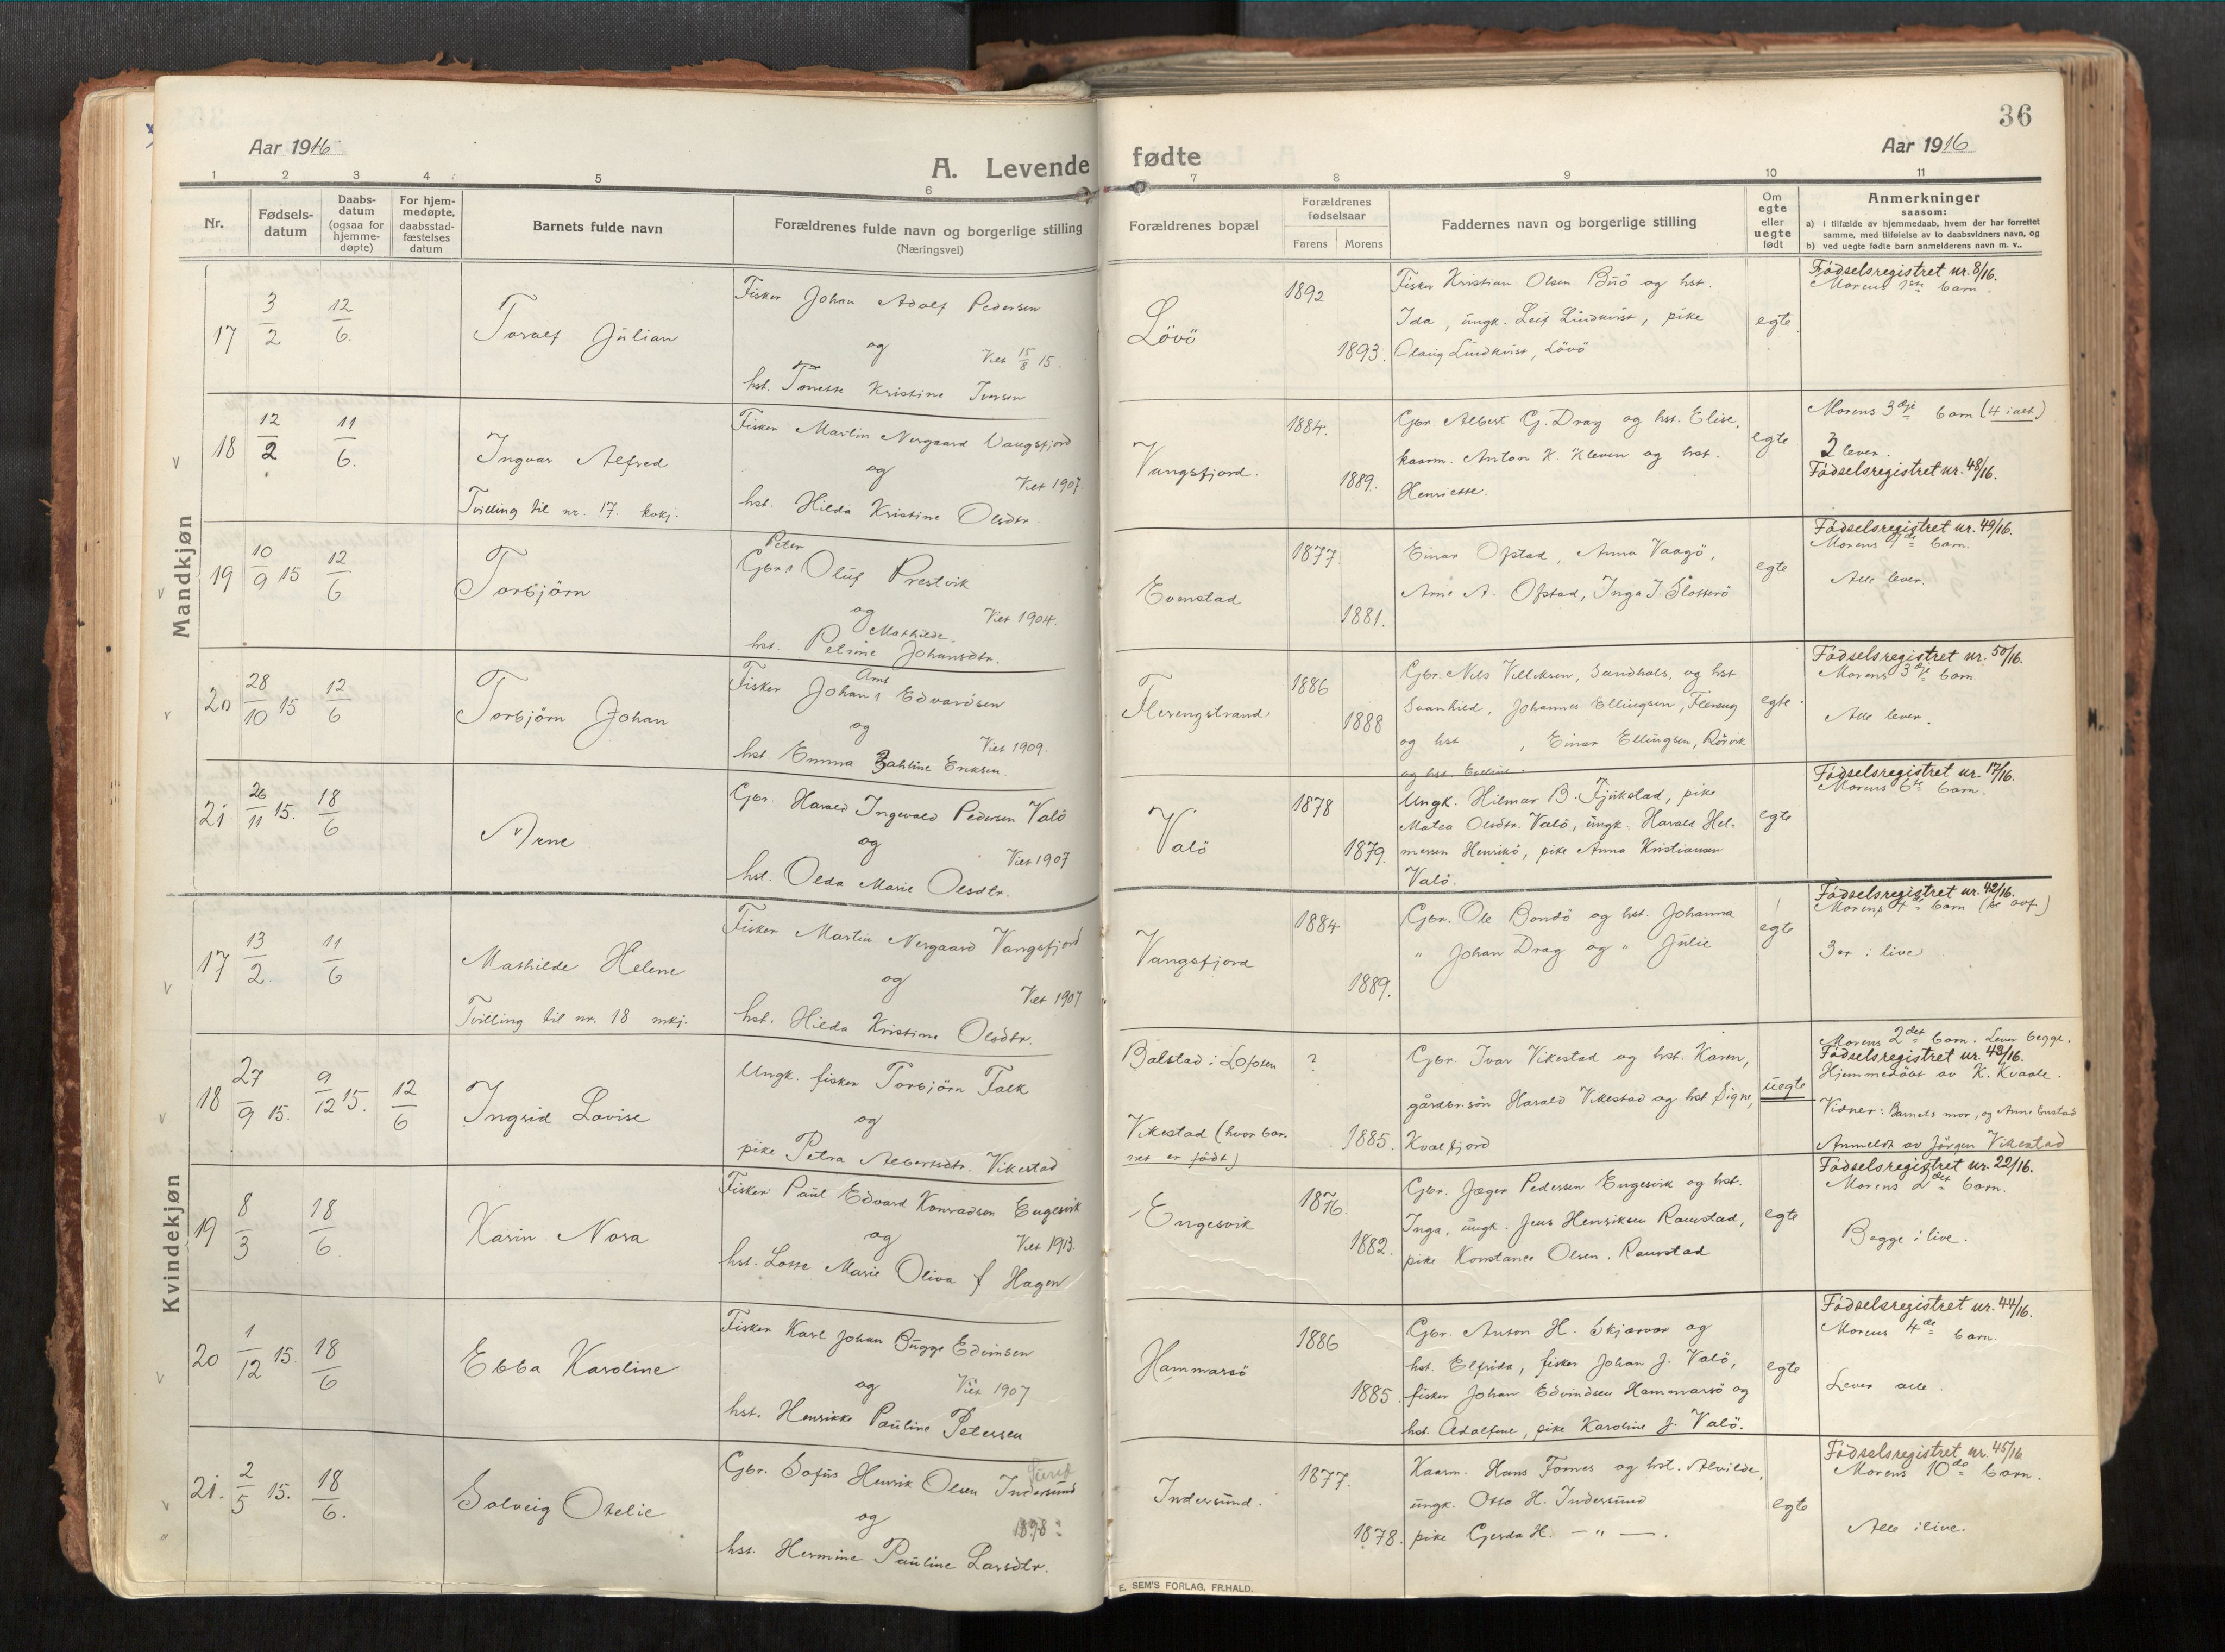 36
Aar 1916
A. Levende
fødte
Aar 1916
1 2 3 4 5 6 7 8 9 10 11
Nr.
Fødsels-
datum
Daabs-
datum
(ogsaa for
hjemme-
døpte)
For hjem-
medøpte,
daabsstad-
fæstelses
datum
Barnets fulde navn
Forældrenes fulde navn og borgerlige stilling
(Næringsvei)
Forældrenes bopæl
Forældrenes
fødselsaar
Farens Morens
Faddernes navn og borgerlige stilling
Om
egte
eller
uegte
født
Anmerkninger
saasom:
a) i tilfælde av hjemmedaab, hvem der har forrettet
samme, med tilføielse av to daabsvidners navn, og
b) ved uegte fødte barn anmelderens navn m. v..
Mandkjøn
17 3/2 12/6.
Toralf Julian
Fisker Johan Adolf Pedersen
og
Viet 15/8 15.
hst. Tonette Kristine Iversen
Lövö
1892
1893.
Fisker Kristian Olsen Buö og hst.
Ida, ungk. Leif Lindkvist, pike
Olaug Lindkvist, Lövö
egte.
Födselsregistret nr. 8/16.
Morens 1ste barn.
18 12/2 11/6.
Ingvar Alfred
Tvilling til nr. 17. kvkj.
Fisker Martin Nergaard Vangsfjord
og
Viet 1907.
hst. Hilda Kristine Olsdtr.
Vangsfjord.
1884.
1889.
Gbr. Albert G. Drag og hst. Elise,
kaarm. Anton K. Kleven og hst.
Henriette.
egte
Morens 3dje barn (4 ialt)
3 lever.
Födselsregistret nr. 48/16.
19 10/9 15 12/6
Torbjörn
Peter
Gbr. Oluf Prestvik
og
Viet 1904.
Mathilde
hst. Petrine Johansdtr.
Evenstad
1877.
1881.
Einar Opstad, Anna Vaagö,
Arne A. Opstad, Inga J. Slotterö
egte
Födselsregistret nr. 49/16.
Morens barn.
Alle lever.
20 28/10 15 12/6
Torbjörn Johan
Arnt
Fisker Johan Edvardsen
og
Viet 1909.
hst. Emma Bahline Eriksen.
Flerengstrand
1886
1888
Gbr. Nils Villiksen, Sandhals, og hst
Svanhild, Johannes Ellingsen, Flereng
og hst , Einar Ellingsen, Rörvik
og hst. Eveline.
egte.
Födselsregistret nr. 50/16.
Morens 3dje barn.
Alle lever.
21 26/11 15. 18/6
Arne
Gbr. Harald Ingvald Pedersen Valö
og
Viet 1907
hst. Olda Marie Olsdtr.
Valö
1878
1879.
Ungk. Hilmar B. Fjukstad, pike
Matea Olsdtr. Valö, ungk. Harald Hel-
messen Henrikö, pike Anna Kristiansen
Valö.
egte
Födselsregistret nr. 17/16.
Morens 6te barn.
Kvindekjøn
17 13/2. 11/6
Mathilde Helene
Tvilling til nr. 18 mkj.
Fisker Martin Nergaard Vangsfjord
og
Viet 1907
hst. Hilda Kristine Olsdtr.
Vangsfjord
1884
1889.
Gbr. Ole Bondö og hst. Johanna
" Johan Drag og " Julie
egte
Födselsregistret nr. 42/16.
Morens 4de barn (se ovf.)
3 er i live
18 27/9 15. 9/12 15. 12/6
Ingrid Lovise
Ungk. fisker Torbjörn Falk
og
pike Petra Albertsdtr. Vikestad
Balstad i Lofoten
Vikestad (hvor bar-
net er födt)
?
1885.
Gbr. Ivar Vikestad og hst. Karen,
gårdbr.sön Harald Vikestad og hst Signe,
Kvalfjord
uegte
Morens 2det barn. Lever begge.
Födselsregistret nr. 43/16.
Hjemmedöbt av K. Kvaale.
Vidner: Barnets mor, og Anne Enstad
Anmeldt av Jörgen Vikestad
19 8/3 18/6.
Karin Nora
Fisker Paul Edvard Konradsen Engesvik
og
Viet 1913.
hst. Lotte Marie Oliva f Hagen
Engesvik
1876.
1882.
Gbr. Jæger Pedersen Engesvik og hst.
Inga, ungk. Jens Henriksen Raustad,
pike Konstance Olsen. Raustad
egte
Födselsregistret nr. 22/16.
Morens 2det barn.
Begge i live.
20 1/12 15. 18/6
Ebba Karoline
Fisker Karl Johan Bugge Edvinsen
og
Viet 1907
hst. Henrikke Pauline Petersen
Hammarsö
1886
1885.
Gbr. Anton H. Skjærvær og
hst. Elfrida, fisker Johan J. Valö,
fisker Johan Edvindsen Hammarsö og
hst. Adolfine, pike Karoline J. Valö.
egte
Födselsregistret nr. 44/16.
Morens 4de barn.
Lever alle.
21. 2/5 15. 18/6.
Solveig Otelie
Gbr. Sofus Henrik Olsen Indersund
og
1898
hst. Hermine Pauline Larsdtr.
Indersund.
1877.
1878.
Kaarm. Hans Fornes og hst. Alvilde,
ungk. Otto H. Indersund
pike Gerda H. — " —.
egte
Födselsregistret nr. 45/16
Morens 10de barn.
Alle i live.
E. SEM'S FORLAG, FR.HALD.